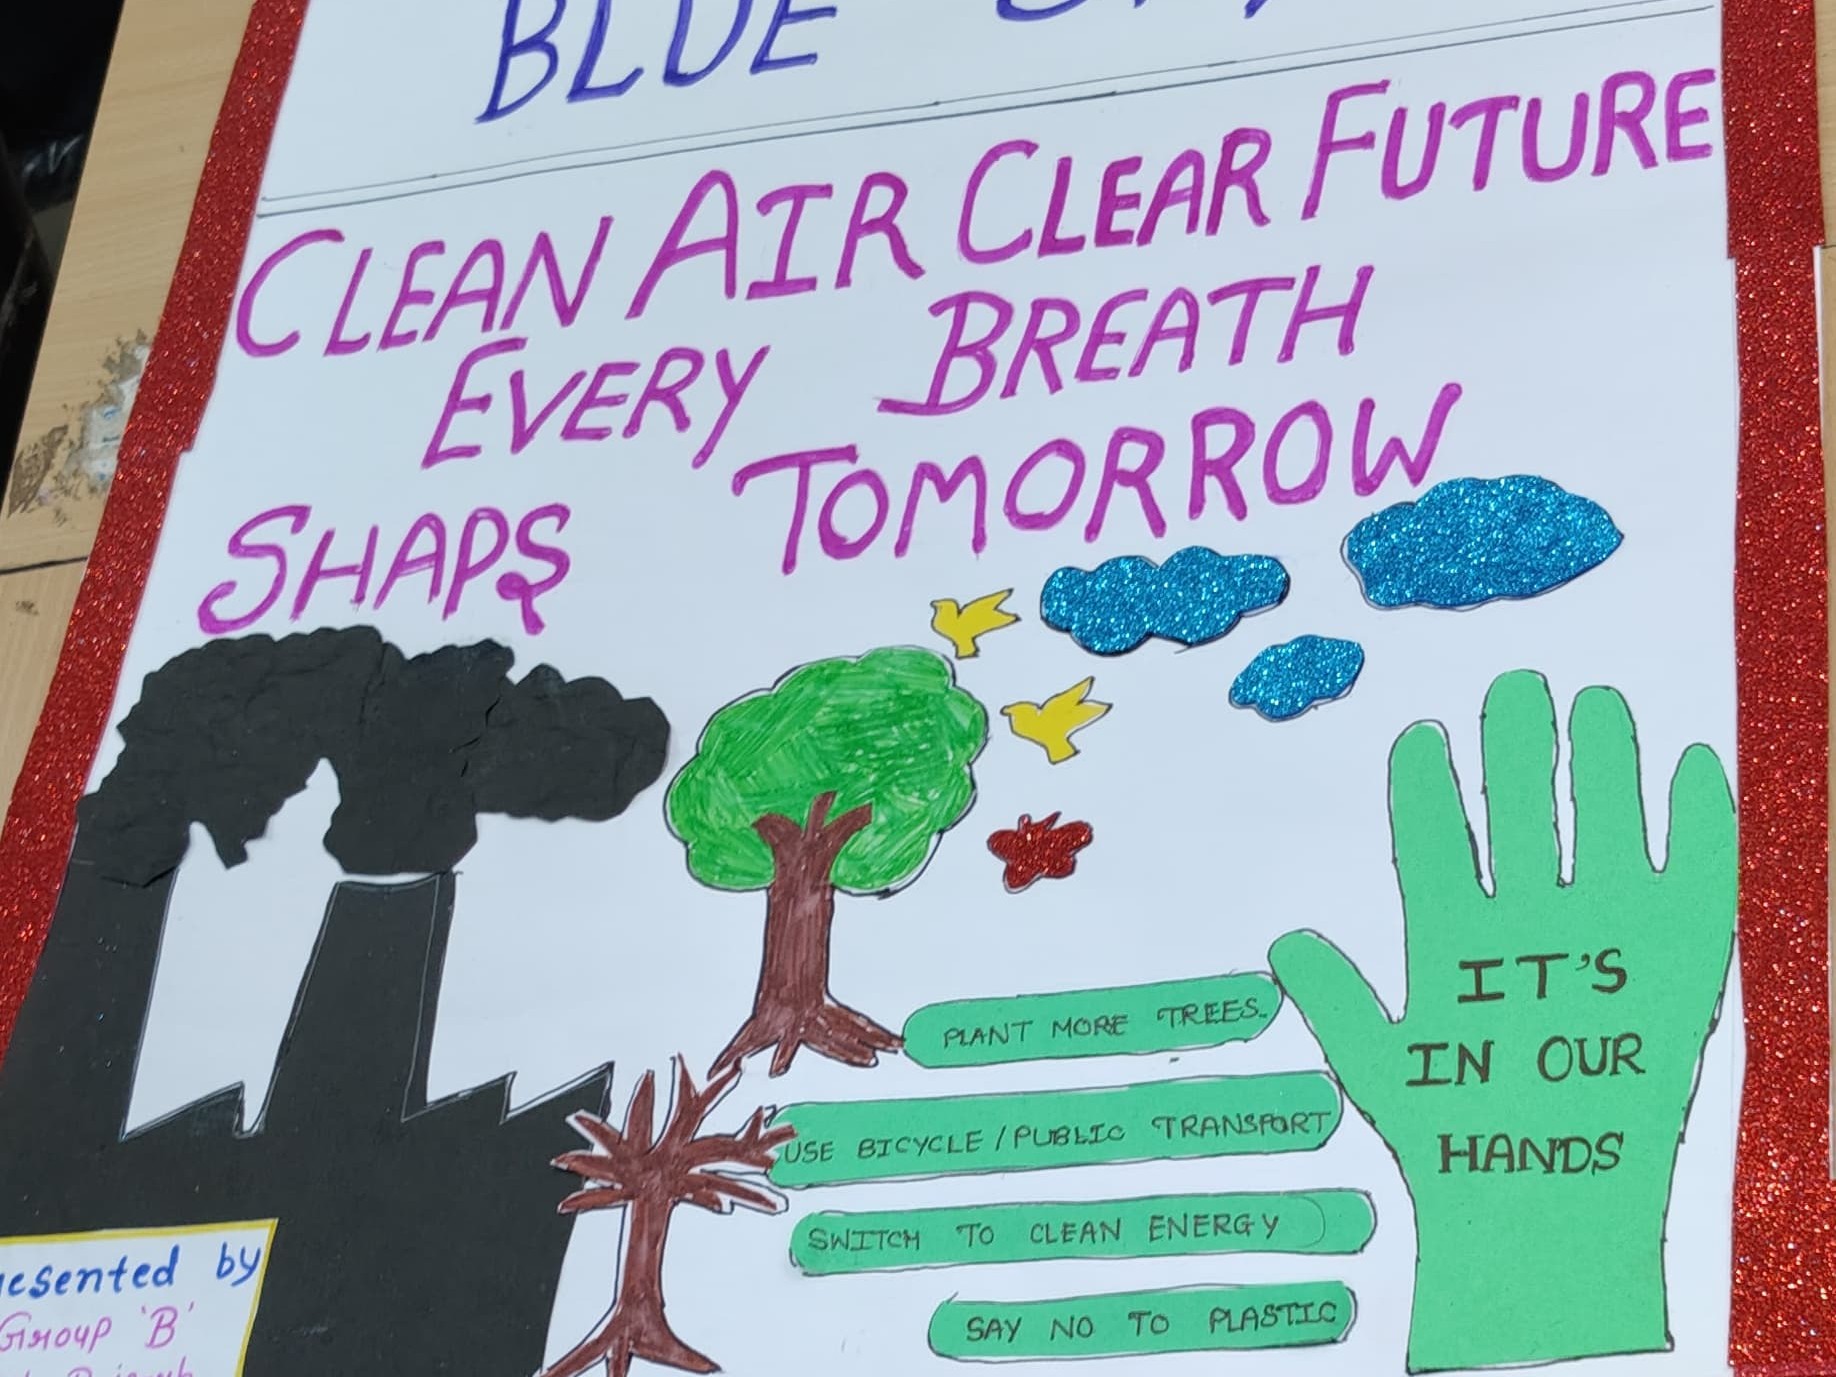 BLUE
CLEAN AIR CLEAR FUTURE
EVERY BREATH
SHAPS TOMORROW
IT'S
IN OUR
HANDS
PLANT MORE TREES
USE BICYCLE/PUBLIC TRANSPORT
SWITCH TO CLEAN ENERGY
SAY NO TO PLASTIC
esented by
Group 'B'